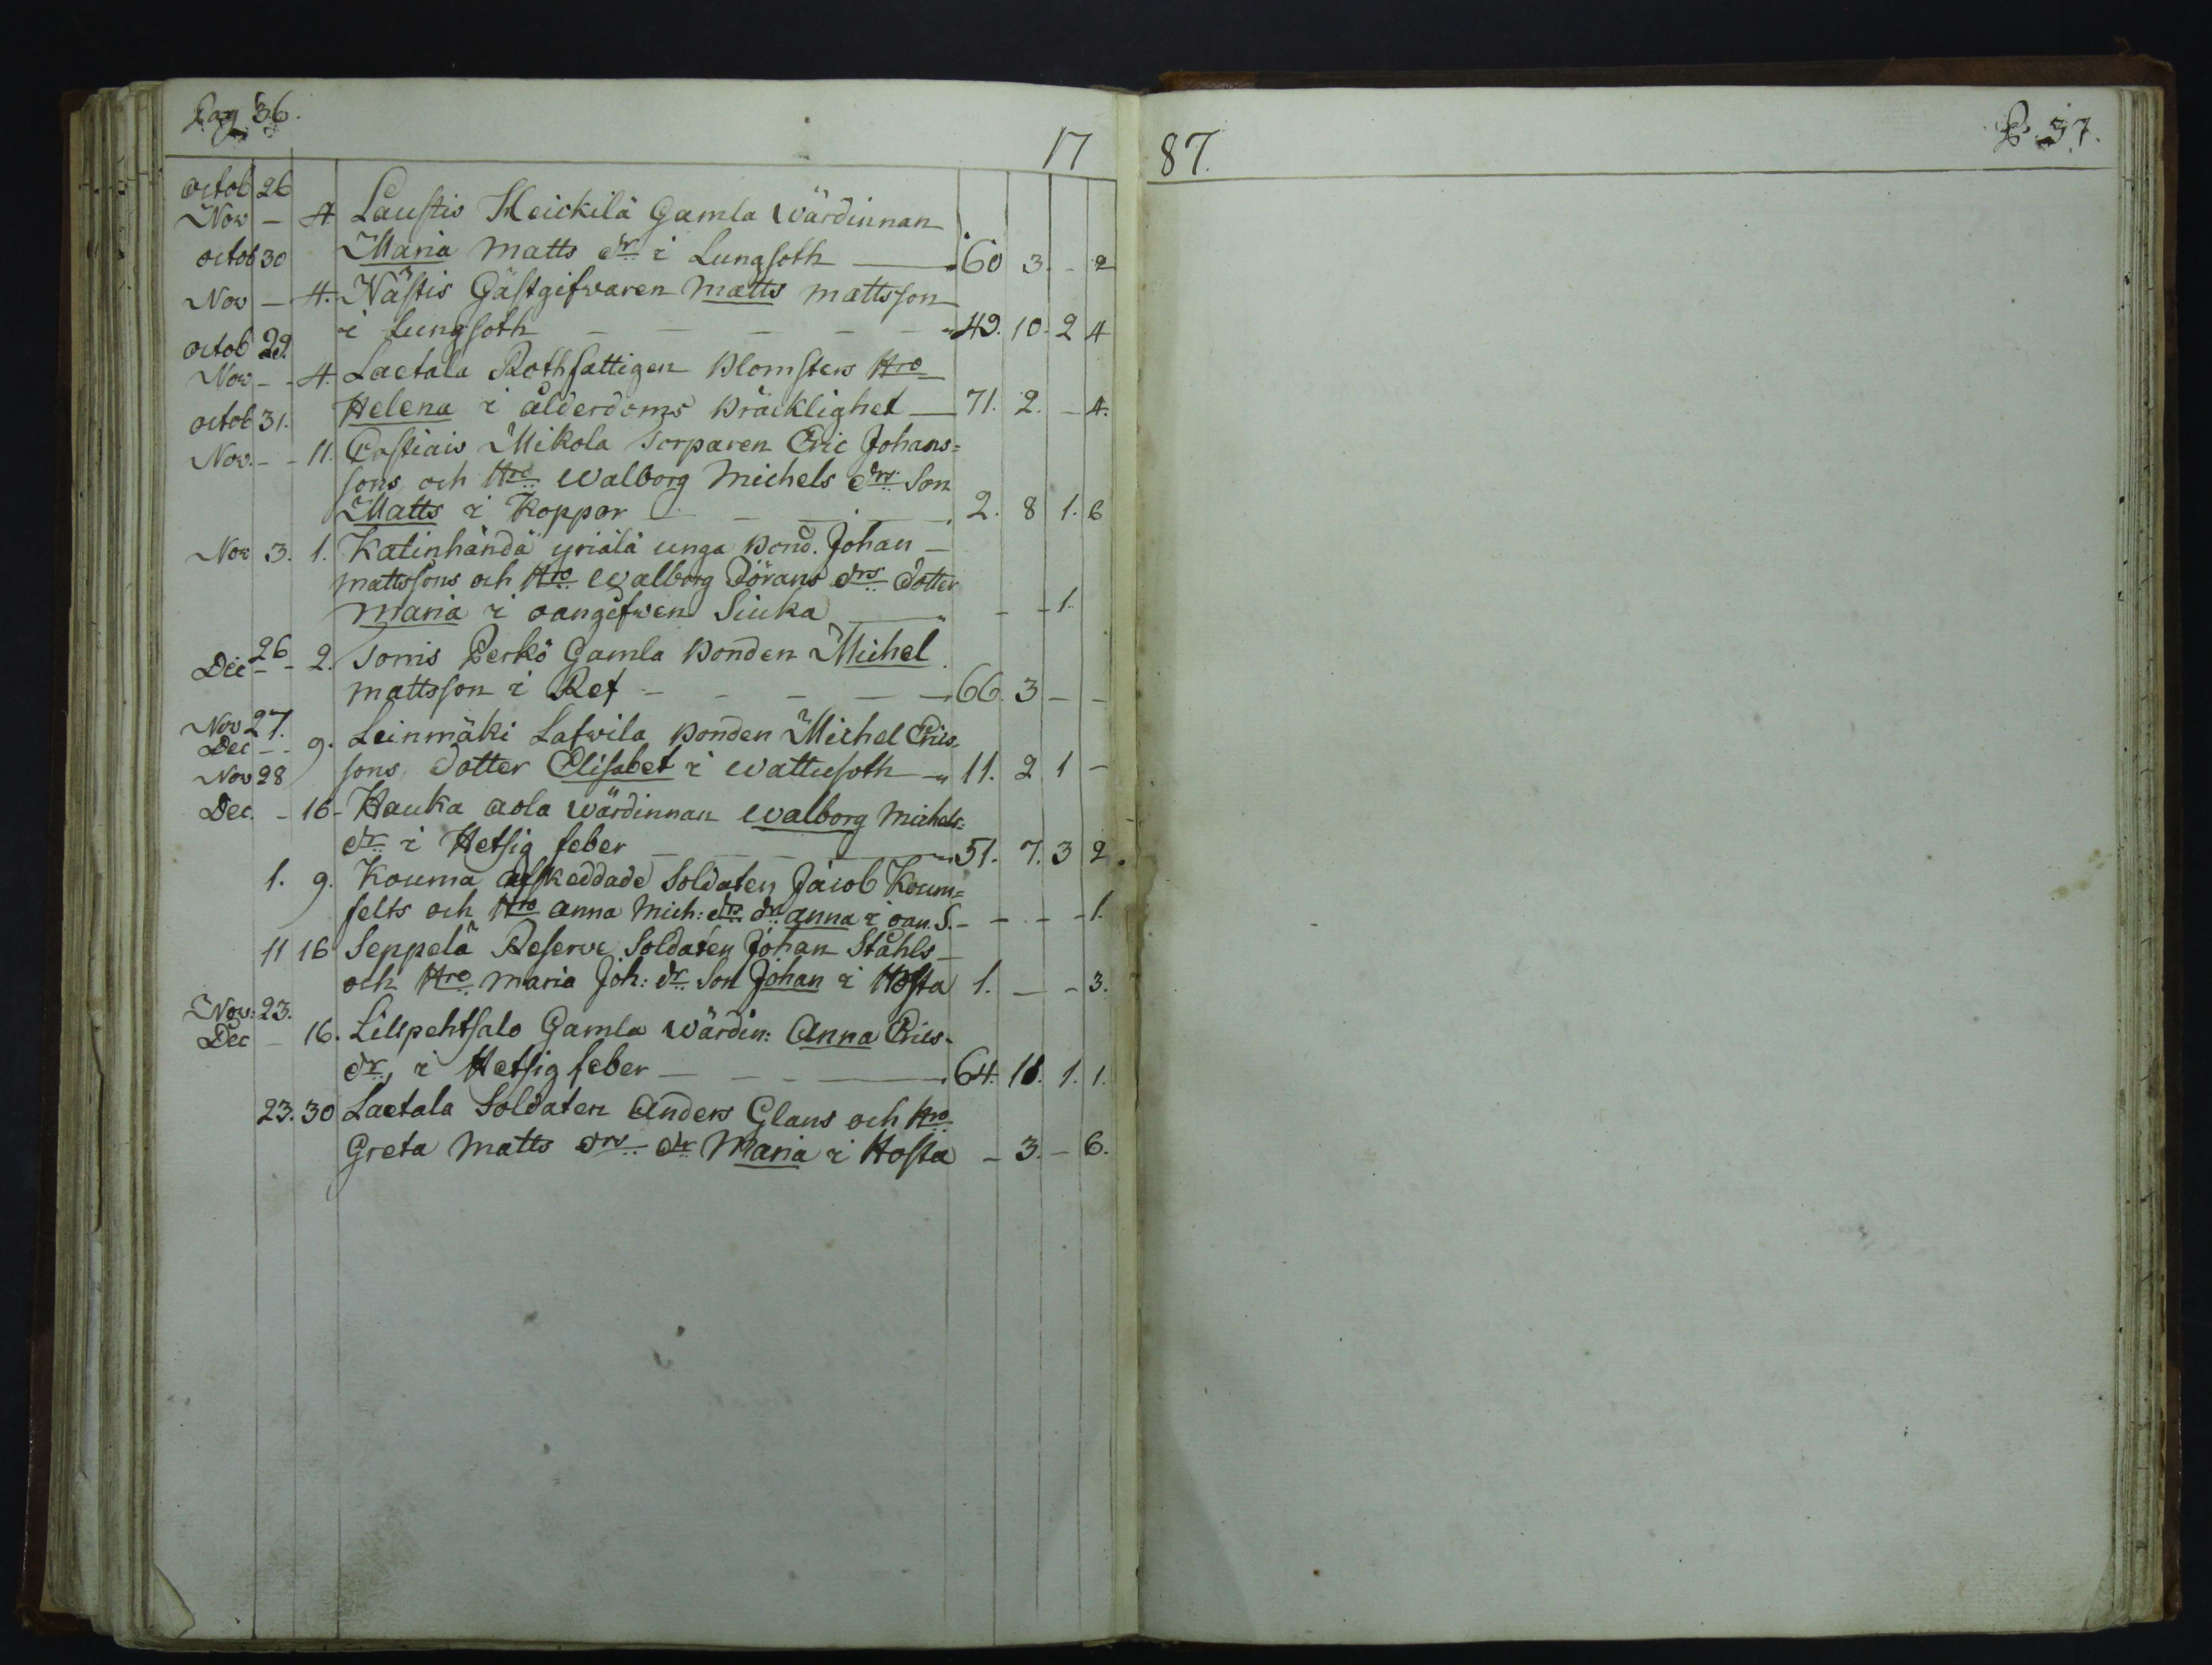 Pag 36.
17
octob 26
Nov - 4. Laustis Heickilä Gamla Wärdinnan
octob 30 Maria Matts dr i Lungsoth 60 3. - 2
Nov - 4. Nästis Gästgifvaren Matts Mattsson
i Lungsoth 49. 10. 2 4
octob 29.
Nov - 4. Laetala Rothfattigen Blomsters Hro
octob 31. Helena i ålderdoms Bräcklighet 71. 2. - 4.
Nov. - 11. Mikola Torparen Eric Johans=
sons och Hro Walborg Michels drs Son
Matts i Koppor 2. 8 1. 6
Nov 3. 1. Katinhändä yriälä unga Bond. Johan
mattssons och Hro Walborg Jörans drs dotter
Maria i oangifwen Siuka - - 1.
26
Dec - 2. Sorris Perko Gamla Bonden Michel
mattsson i Ref 66. 3 - -
Nov 27.
Dec - 9. Leinmäki Lafvila Bonden Michel Erics
Nov 28 sons, dotter Elisabet i Wattusoth 11. 2 1 -
Dec. - 16- Hauka aola Wärdinnan Walborg Michels=
dr i Hetsig feber 51. 7. 3 2.
1. 9. Kouma afskeddade Soldaten Jacob Koum=
felts och Hro Anna Mich: drs dr Anna i oan. S. - - - 1.
11 16 Seppelä Reserve Soldaten Johan Ståhls
och Hro Maria Joh: dr Son Johan i Hosta 1. - - 3.
Nov: 23.
Dec - 16. Lillpehtsalo Gamla Wärdin: Anna Erics-
dr, i Hetsig feber 64. 1. 1.
23. 30 Laetala Soldaten Anders Glans och Hro
Greta Matts drs dr Maria i Hosta - 3. - 6.
87.
P. 37.